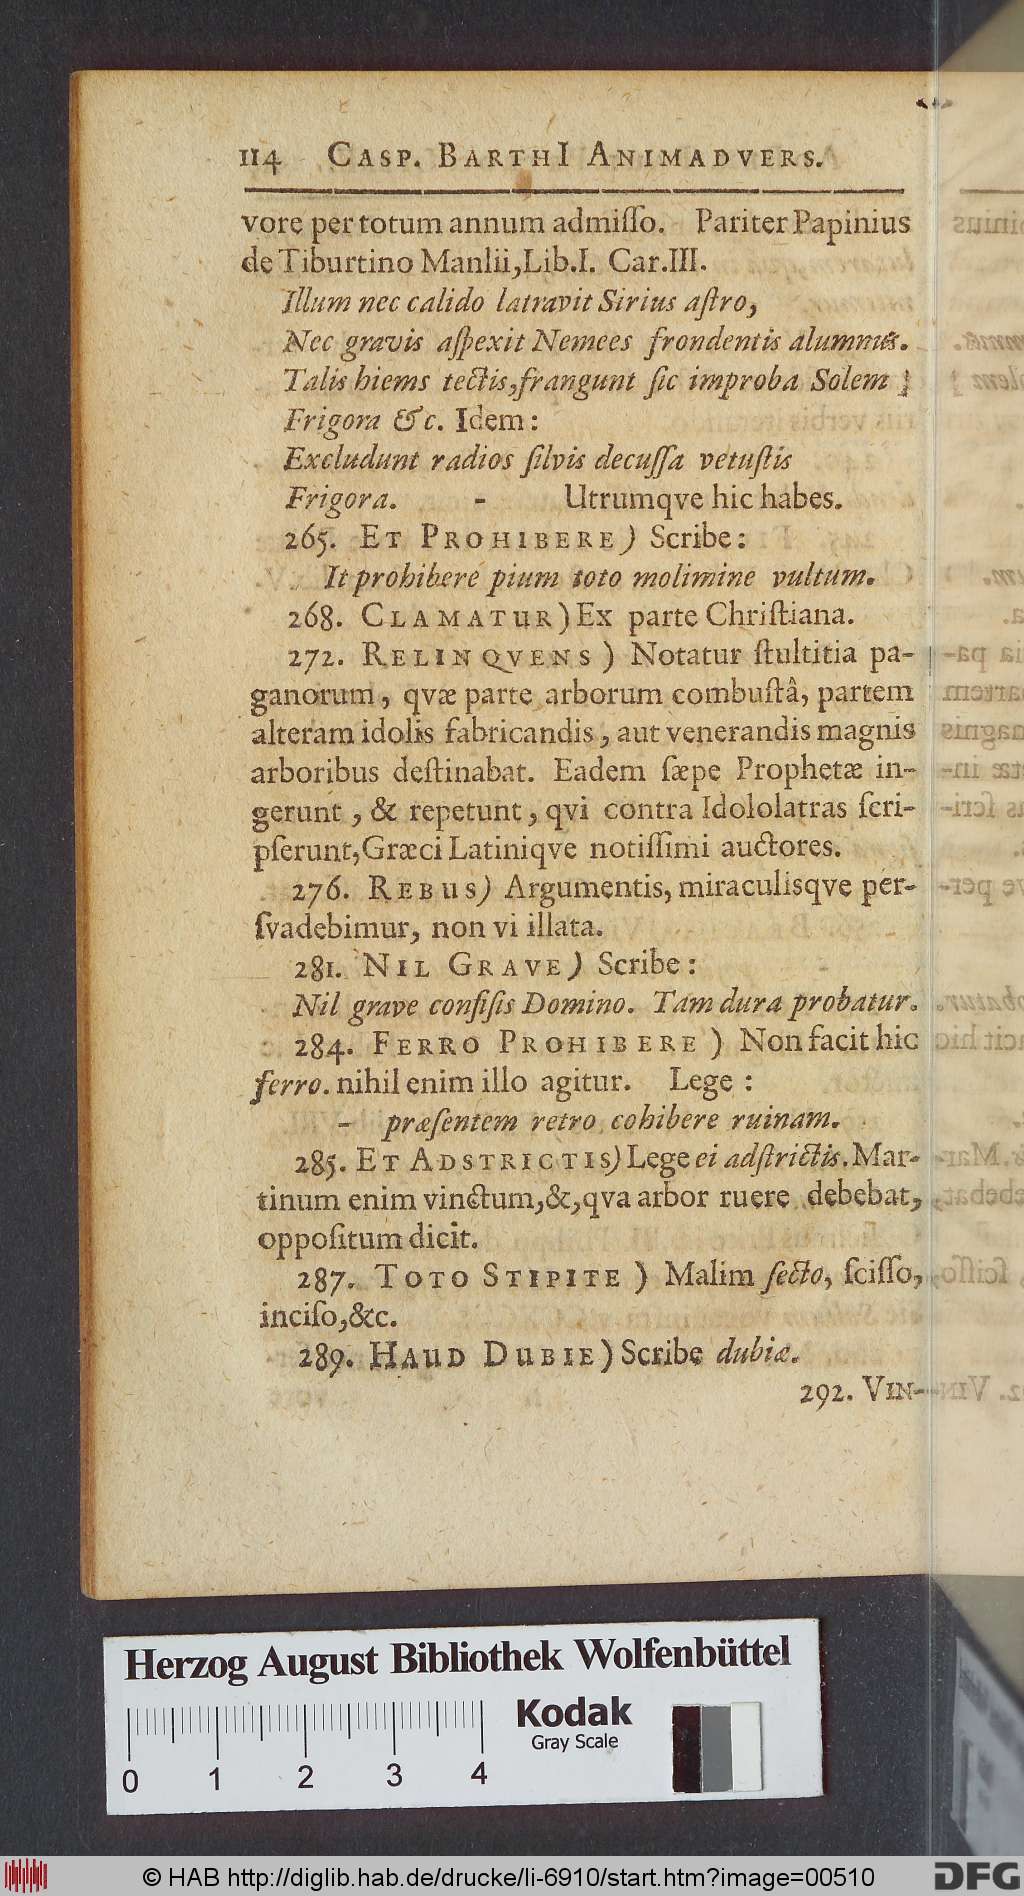 114 CASP. BARTHI ANIMADVERS.
vore per totum annum admiſſo. Pariter Papinius
de Tiburtino Manlii, Lib. I. Car. III.
Illum nec calido latravit Sirius aſtro,
Nec gravis aſpexit Nemees frondentis alumnus.
Talis hiems tectis, frangunt ſic improba Solem ]
Frigora &c. Idem:
Excludunt radios ſilvis decuſſa vetuſtis
Frigora. - Utrumqve hic habes.
265. ET PROHIBERE) Scribe:
It prohibere pium toto molimine vultum.
268. CLAMATUR) Ex parte Chriſtiana.
272. RELINQVENS) Notatur ſtultitia pa-
ganorum, qvæ parte arborum combuſtâ, partem
alteram idolis fabricandis, aut venerandis magnis
arboribus deſtinabat. Eadem ſæpe Prophetæ in-
gerunt, & repetunt, qvi contra Idololatras ſcri-
pſerunt, Græci Latiniqve notiſſimi auctores.
276. REBUS) Argumentis, miraculisqve per-
ſvadebimur, non vi illata.
281. NIL GRAVE) Scribe:
Nil grave confiſis Domino. Tam dura probatur.
284. FERRO PROHIBERE) Non facit hic
ferro. nihil enim illo agitur. Lege:
- præſentem retro cohibere ruinam.
285. ET ADSTRICTIS) Lege ei adſtrictis. Mar-
tinum enim vinctum, &, qva arbor ruere debebat,
oppoſitum dicit.
287. TOTO STIPITE) Malim ſecto, ſciſſo,
inciſo, &c.
289. HAUD DUBIE) Scribe dubiæ.
292. VIN-
Herzog August Bibliothek Wolfenbüttel
Kodak
Gray Scale
0 1 2 3 4
© HAB http://diglib.hab.de/drucke/li-6910/start.htm?image=00510
DFG